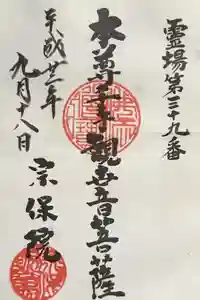 霊場第三十九番
本尊千手観世音菩薩
平成廿一年
九月十八日
宗保院